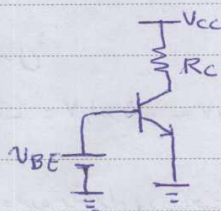 VCC
RC
VBE